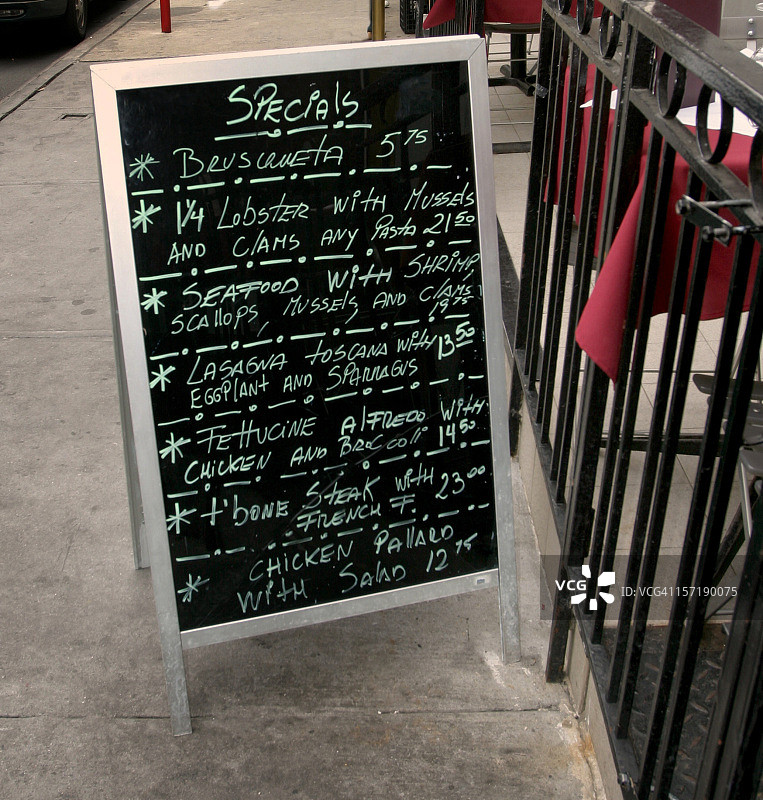 SPECIALS
* BRUSCUNETA 5 75
* 1/4 LOBSTER WITH MUSSELS
AND CLAMS ANY PASTA 21 50
* SEAFOOD WITH SHRIMP,
SCALLOPS, MUSSELS AND CLAMS
19 75
* LASAGNA TOSCANA WITH 13 50
EGGPLANT AND SPARRAGUS
* FETTUCINE ALFREDO WITH
CHICKEN AND BROCCOLI 14 50
* T'BONE STEAK WITH 23 00
FRENCH F.
CHICKEN PALLARD
* WITH SALAD 12 75
VCG ID: VCG41157190075